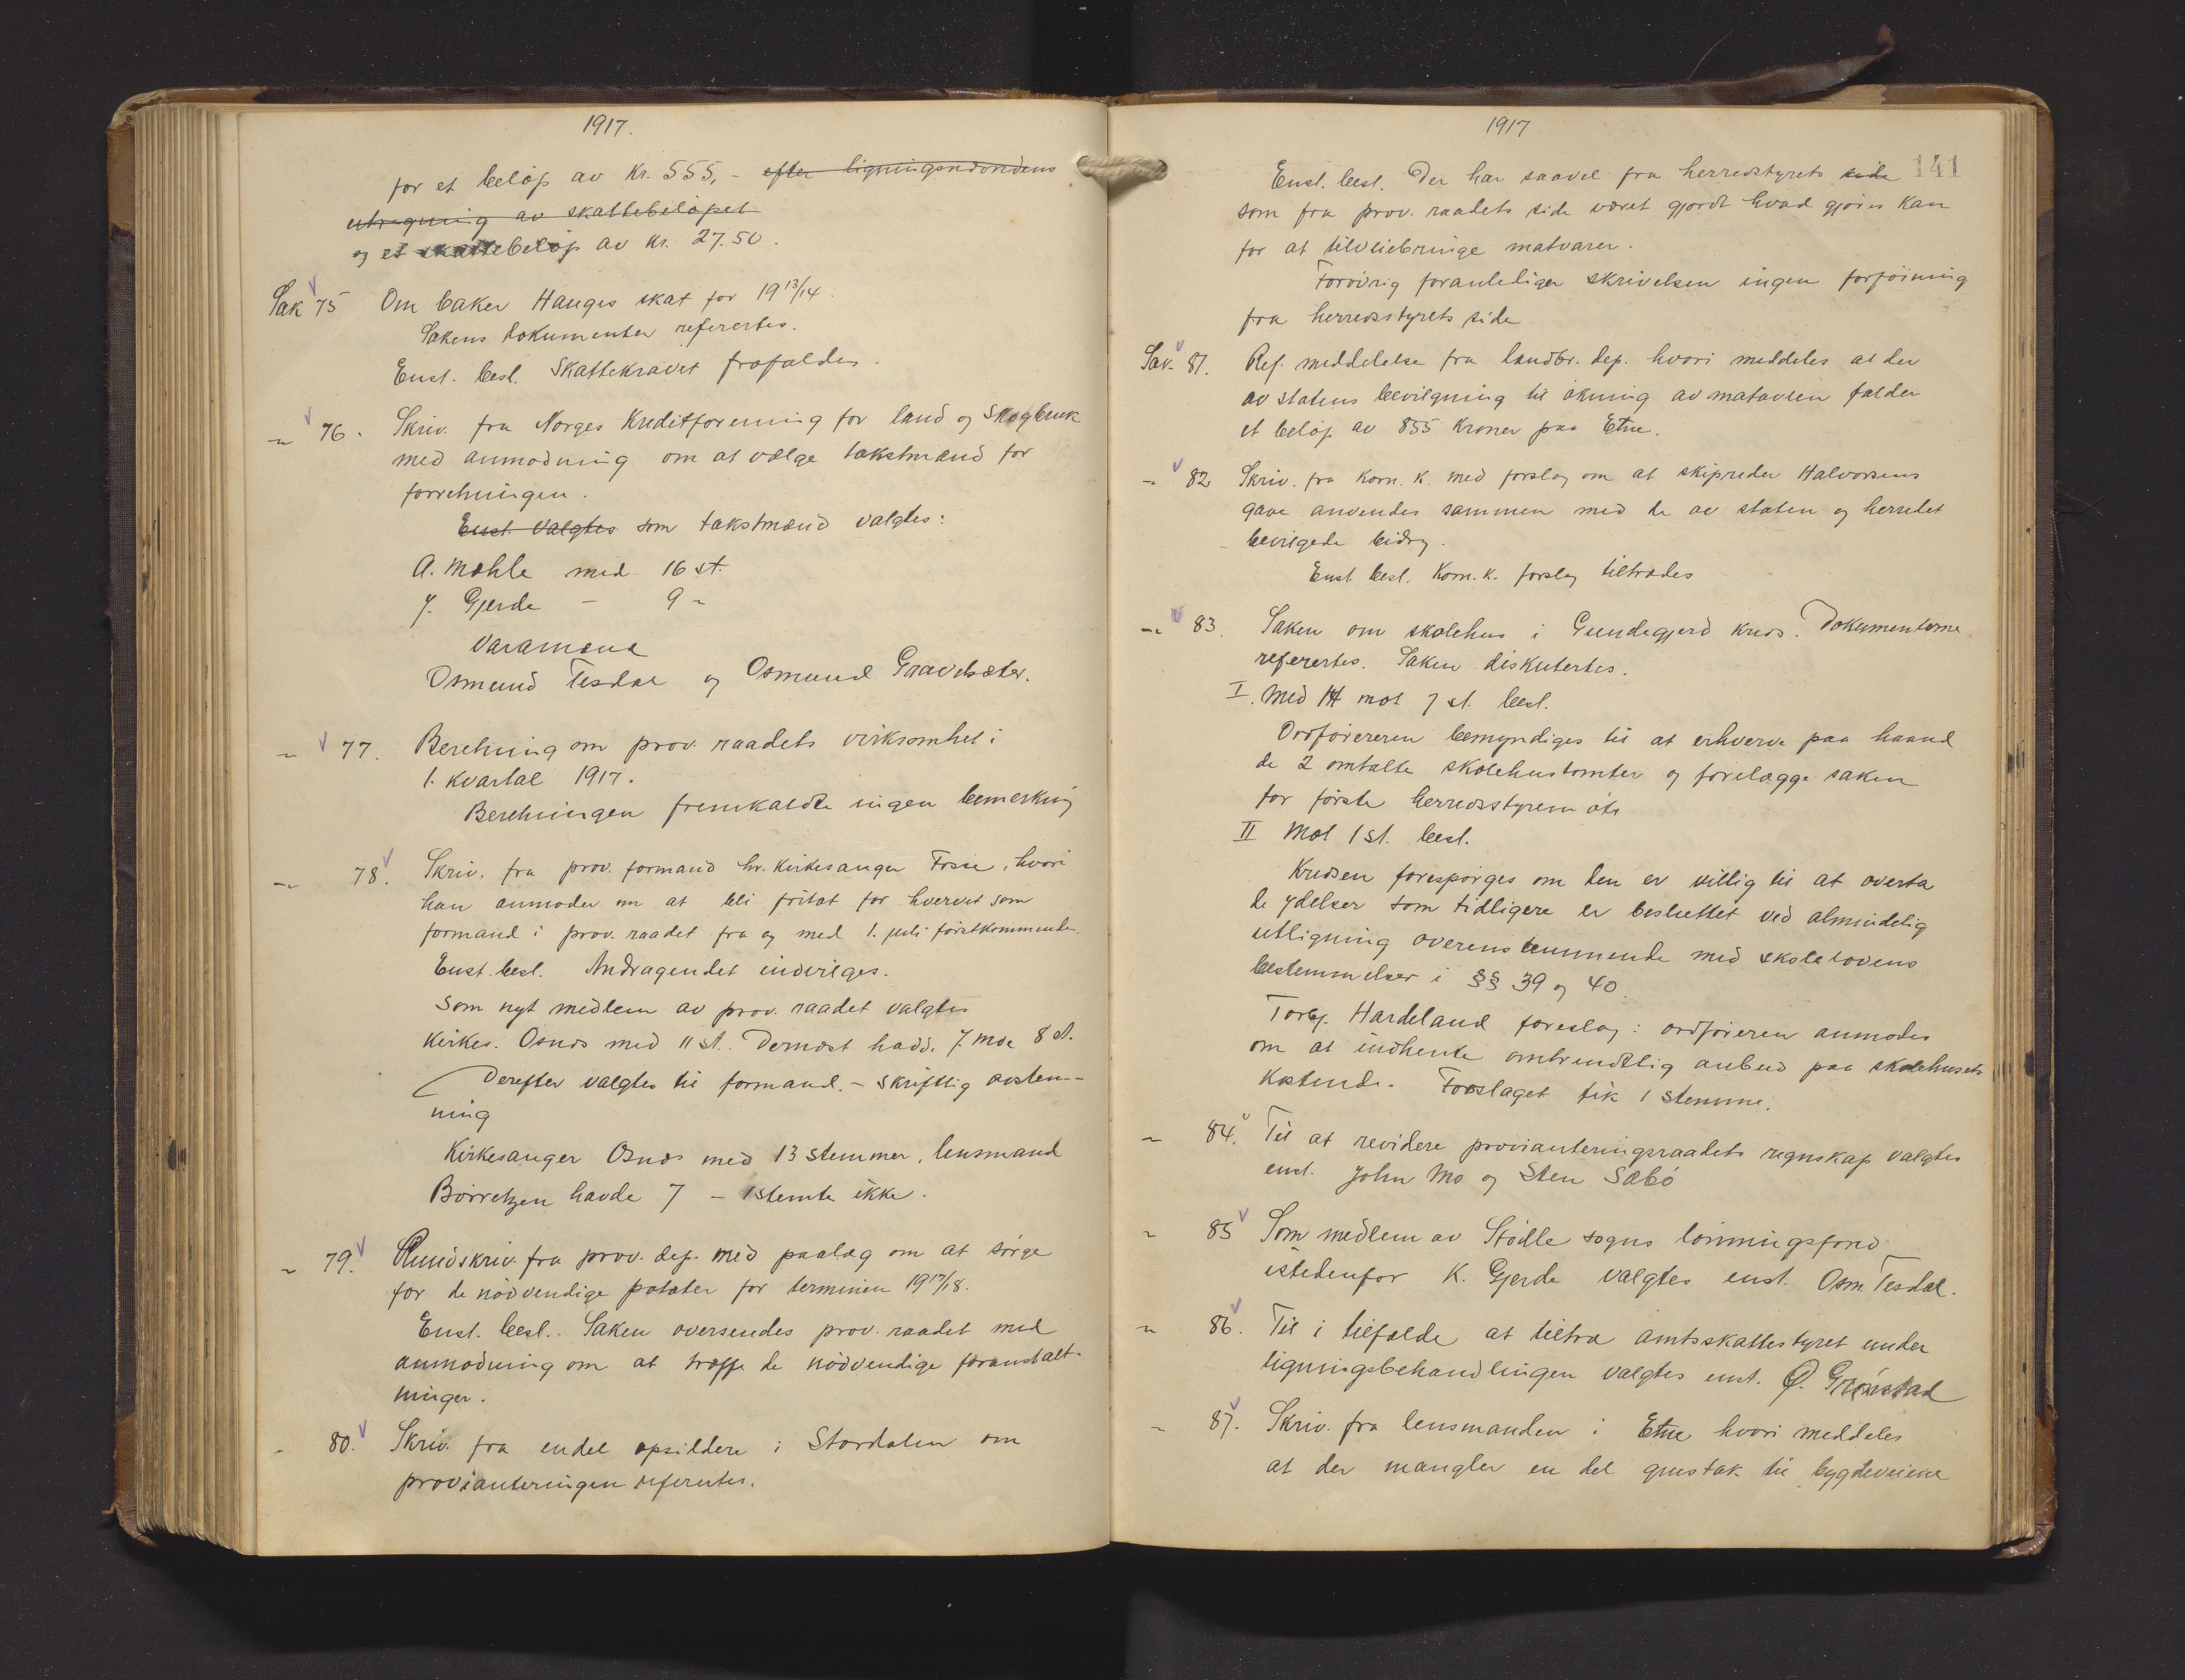 1917.
for et beløp av kr. 555,- efter ligningsnevndens
utregning av skattebeløpet
og et skattebeløp av kr. 27.50.
Sak 75 Om baker Hauges skat for 19 13/14.
Sakens dokumenter refereertes.
Enst. besl. Skattekravet frafaldes.
-"- 76. Skriv. fra Norges Kreditforening for land og Skogbruk
med anmodning om at vælge takstmænd for
forretningen.
Enst. Valgtes som takstmænd valgtes:
A. Mæhle med 16 st.
J. Gjerde - 9 "
Varamænd
Osmund Tesdal og Osmund Gravelsæter.
-"- 77. Beretning om prov. raadets virksomhet i
1. kvartal 1917.
Beretningen fremkaldte ingen bemerkning
-"- 78. Skriv. fra prov. formand hr. kirkesanger Fosse, hvori
han anmoder om at bli fritat for hvervet som
formand i prov. raadet fra og med 1. juli førstkommende.
Enst. besl. Andragendet indvilges.
Som nyt medlem av prov. raadet valgtes
Kirkes. Osnes med 11 st. Dernæst hadde J. Moe 8 st.
Derefter valgtes til formand. - skriftlig avstem-
ning
Kirkesanger Osnes med 13 stemmer, lensmand
Börretzen havde 7 - 1 stemte ikke.
-"- 79. Rundskriv. fra prov. dep. med paalæg om at sørge
for de nødvendige poteter for terminen 19 17/18.
Enst. besl. Saken oversendes prov. raadet med
anmodning om at træffe de nødvendige foranstalt-
ninger.
- 80. Skriv. fra endel opsiddere i Stordalen om
provianteringen refereertes.
1917
141
Enst. besl. Der har saavel fra herredstyrets side
som fra prov. raadets side været gjordt hvad gjøres kan
for at tilveiebringe matvarer.
Forøvrig foranlediger skrivelsen ingen forføining
fra herredsstyrets side
Sak. 81. Ref. meddelelse fra landbr. dep. hvori meddeles at der
av statens bevilgning til økning av matavlen falder
et beløp av 855 kroner paa Etne.
-"- 82. Skriv. fra Korn. k. med forslag om at skipsreder Halvorsens
gave anvendes sammen med de av staten og herredet
bevilgede bidrag.
Enst. besl. Korn. k. forslag tiltrædes
-"- 83. Saken om skolehus i Gundegjerd kreds. Dokumenterne
refererertes. Saken diskutertes.
I. Med 14 mot 7 st. besl.
Ordføreren bemyndiges til at erhverve paa haand
de 2 omtalte skolehustomter og forelægge saken
for første herredsstyremøte
II Mot 1 st. besl.
Kredsen forespørges om den er villig til at overta
de ydelser som tidligere er besluttet ved almindelig
utligning overensstemmende med skolelovens
bestemmelser i §§ 39 og 40.
Torbj. Hardeland foreslog: ordføreren anmodes
om at indhente omtrentlig anbud paa skolehusets
kostende. Forslaget fik 1 stemme.
-"- 84. Til at revidere provianteringsraadets regnskap valgtes
enst. John Mo og Sten Sæbø
-"- 85 Som medlem av Stødle sogns lønningsfond
istedenfor K. Gjerde valgtes enst. Osm. Tesdal.
-"- 86. Til i tilfælde at tiltræ amtsskattestyret under
ligningsbehandlingen valgtes enst. Ø. Grønstad
- 87. Skriv. fra lensmanden i Etne hvori meddeles
at der mangler en del grustak til bygdeveiene